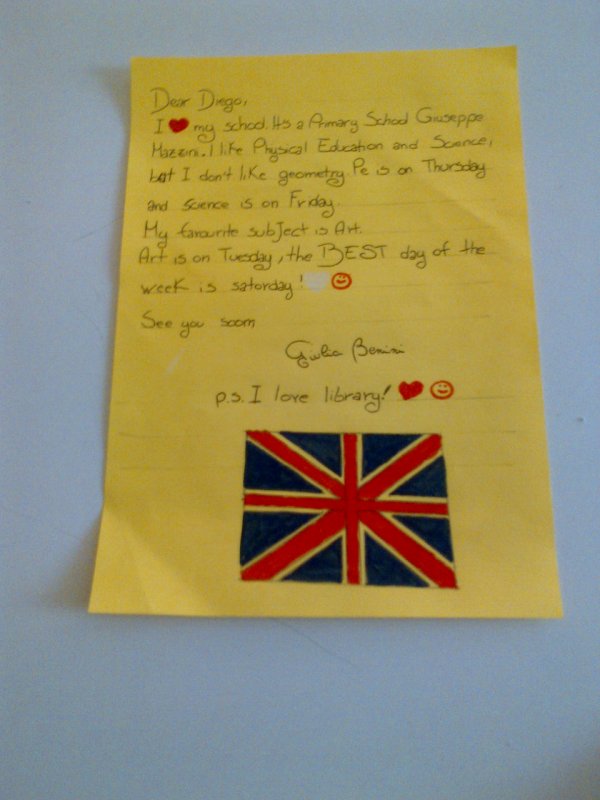 Dear Diego,
I ❤ my school. Its a Primary School Giuseppe
Mazzini. I like Physical Education and Science,
but I don't like geometry. Pe is on Thursday
and science is on Friday.
My favourite subject is Art.
Art is on Tuesday, the BEST day of the
week is satorday! ☺
See you soom
Giulia Benini
p.s. I love library! ❤ ☺